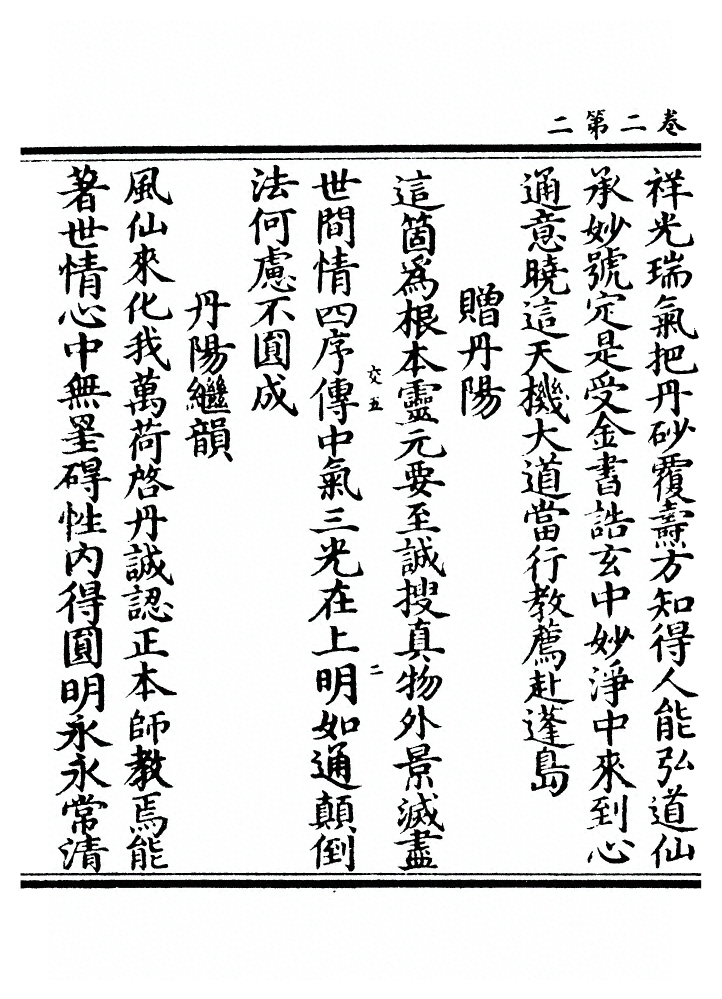 卷二第二
祥光瑞氣把丹砂覆燾方知得人能弘道仙
承妙號定是受金書誥玄中妙淨中來到心
通意曉這天機大道當行教薦赴蓬島
贈丹陽
這箇爲根本靈元要至誠搜真物外景滅盡
交五 二
世間情四序傳中氣三光在上明如通顛倒
法何慮不圓成
丹陽繼韻
風仙來化我萬荷啓丹誠認正本師教焉能
著世情心中無罣碍性內得圓明永永常清